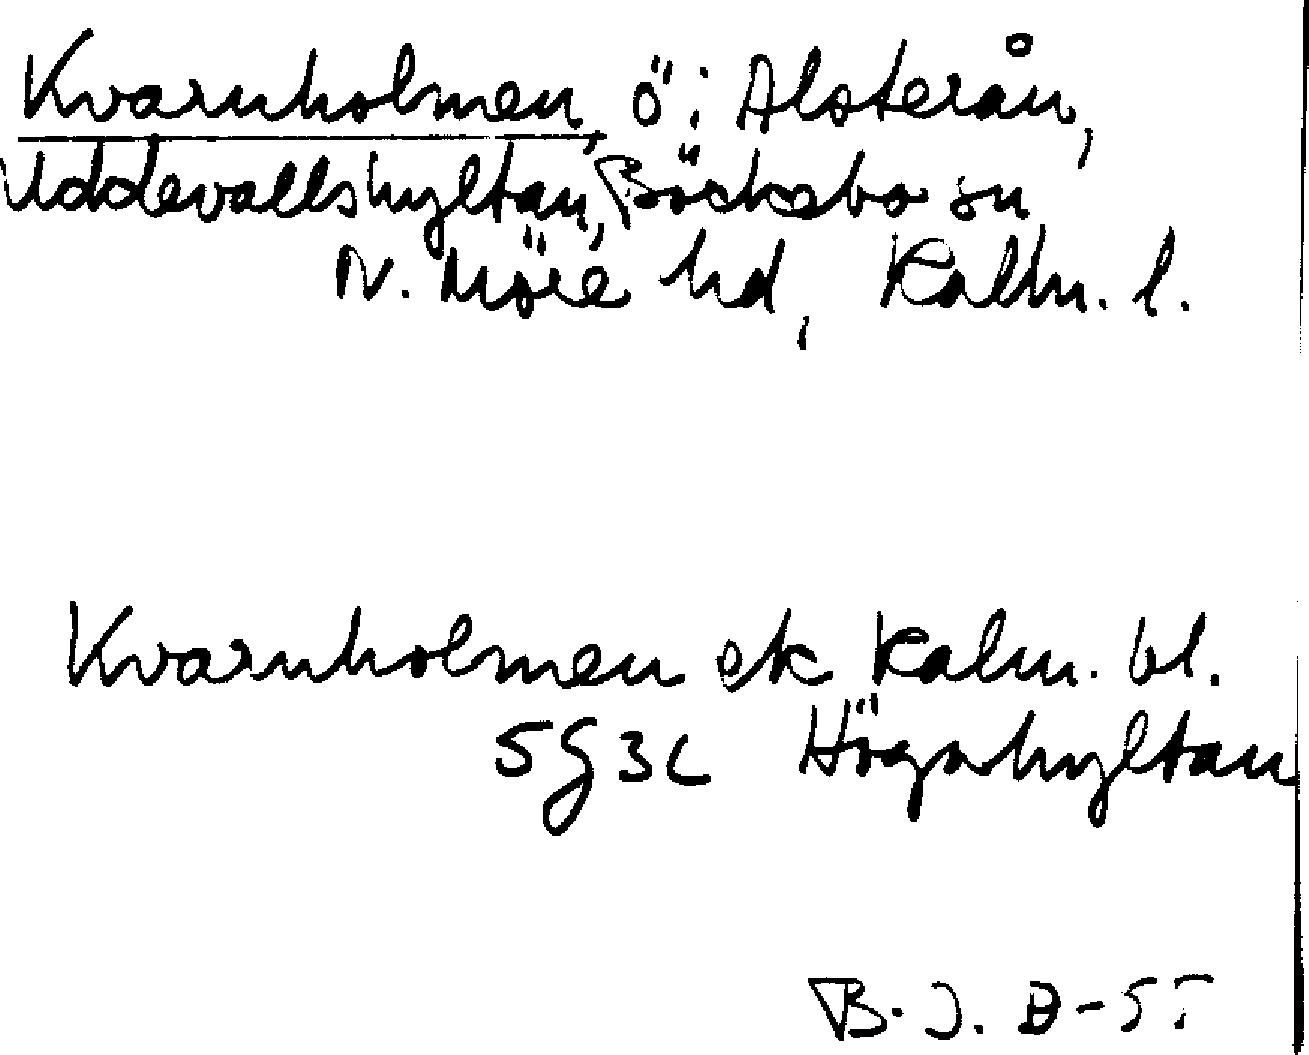 Kvarnholmen, ö i Alsterån,
Uddevallshyltan, Bäckebo sn
N. Möre hd, Kalm. l.
Kvarnholmen ek Kalm. bl.
5g3c Högahyltan
B. J.